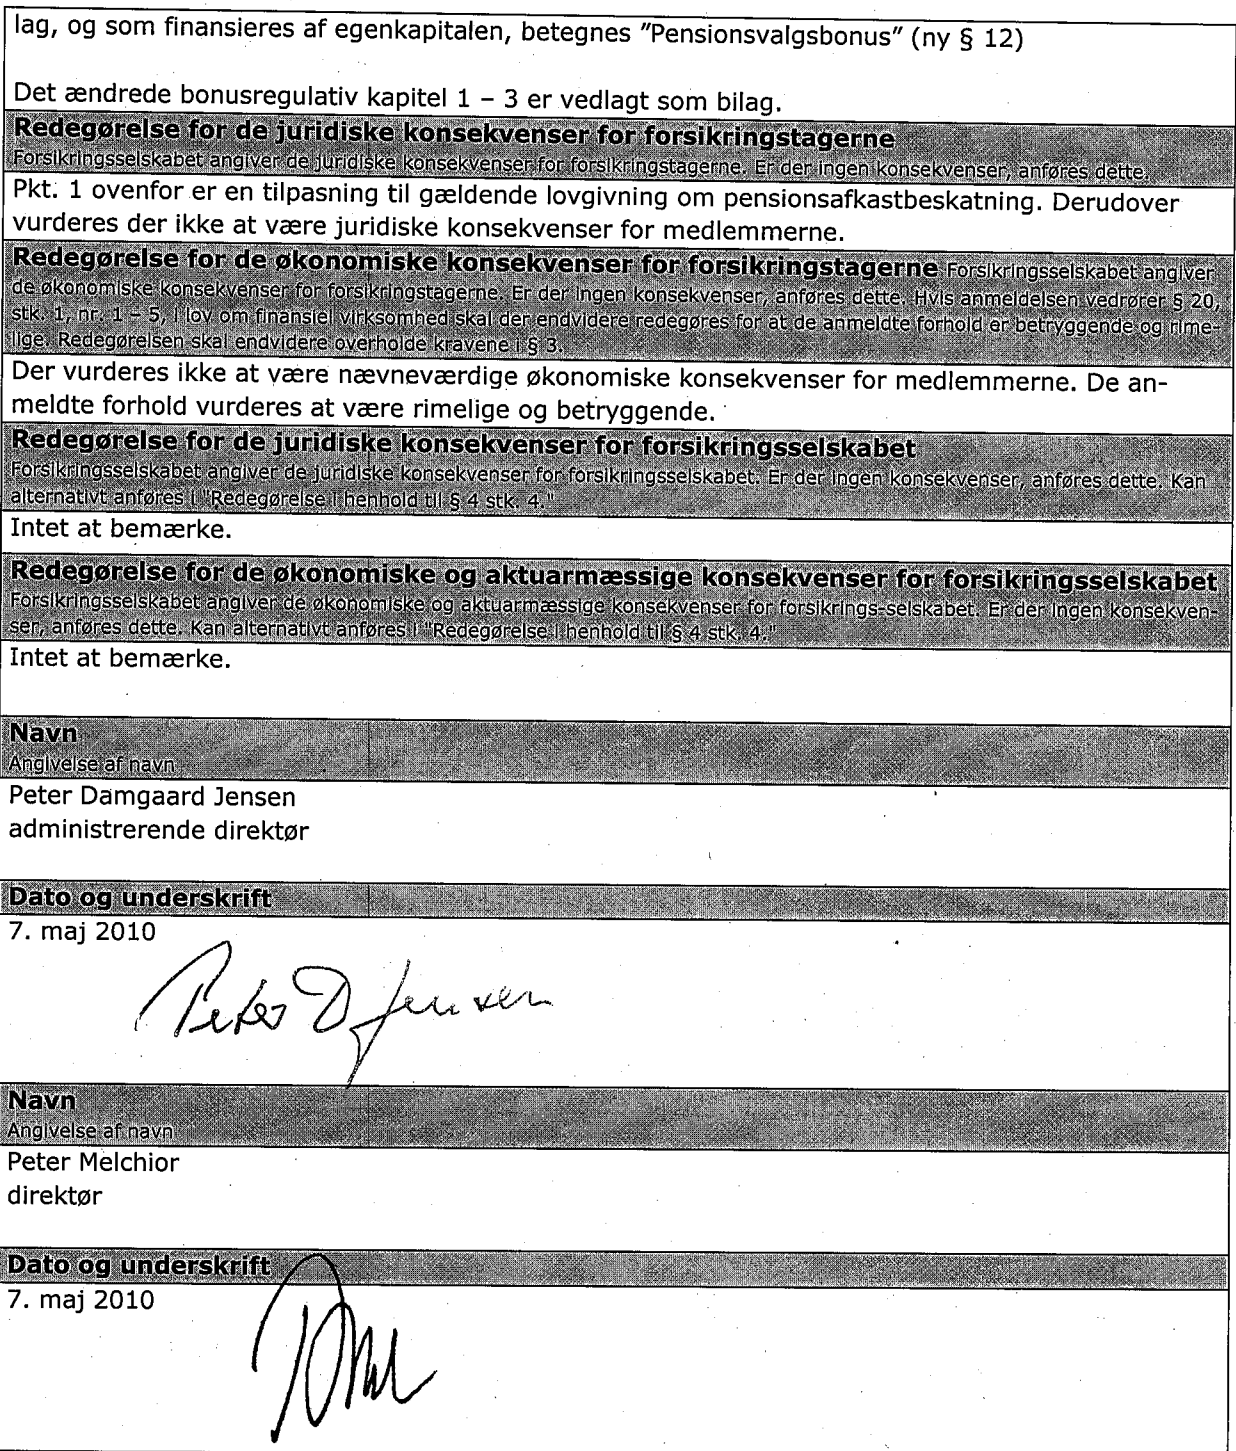 lag, og som finansieres af egenkapitalen, betegnes "Pensionsvalgsbonus" (ny § 12)
Det ændrede bonusregulativ kapitel 1 – 3 er vedlagt som bilag.
Redegørelse for de juridiske konsekvenser for forsikringstagerne
Forsikringsselskabet angiver de juridiske konsekvenser for forsikringstagerne. Er der ingen konsekvenser, anføres dette.
Pkt. 1 ovenfor er en tilpasning til gældende lovgivning om pensionsafkastbeskatning. Derudover
vurderes der ikke at være juridiske konsekvenser for medlemmerne.
Redegørelse for de økonomiske konsekvenser for forsikringstagerne Forsikringsselskabet angiver
de økonomiske konsekvenser for forsikringstagerne. Er der ingen konsekvenser, anføres dette. Hvis anmeldelsen vedrører § 20,
stk. 1, nr. 1 – 5, i lov om finansiel virksomhed skal der endvidere redegøres for at de anmeldte forhold er betryggende og rime-
lige. Redegørelsen skal endvidere overholde kravene i § 3.
Der vurderes ikke at være nævneværdige økonomiske konsekvenser for medlemmerne. De an-
meldte forhold vurderes at være rimelige og betryggende.
Redegørelse for de juridiske konsekvenser for forsikringsselskabet
Forsikringsselskabet angiver de juridiske konsekvenser for forsikringsselskabet. Er der ingen konsekvenser, anføres dette. Kan
alternativt anføres i "Redegørelse i henhold til § 4 stk. 4."
Intet at bemærke.
Redegørelse for de økonomiske og aktuarmæssige konsekvenser for forsikringsselskabet
Forsikringsselskabet angiver de økonomiske og aktuarmæssige konsekvenser for forsikrings-selskabet. Er der ingen konsekven-
ser, anføres dette. Kan alternativt anføres i "Redegørelse i henhold til § 4 stk. 4."
Intet at bemærke.
Navn
Angivelse af navn
Peter Damgaard Jensen
administrerende direktør
Dato og underskrift
7. maj 2010
Peter D Jensen
Navn
Angivelse af navn
Peter Melchior
direktør
Dato og underskrift
7. maj 2010